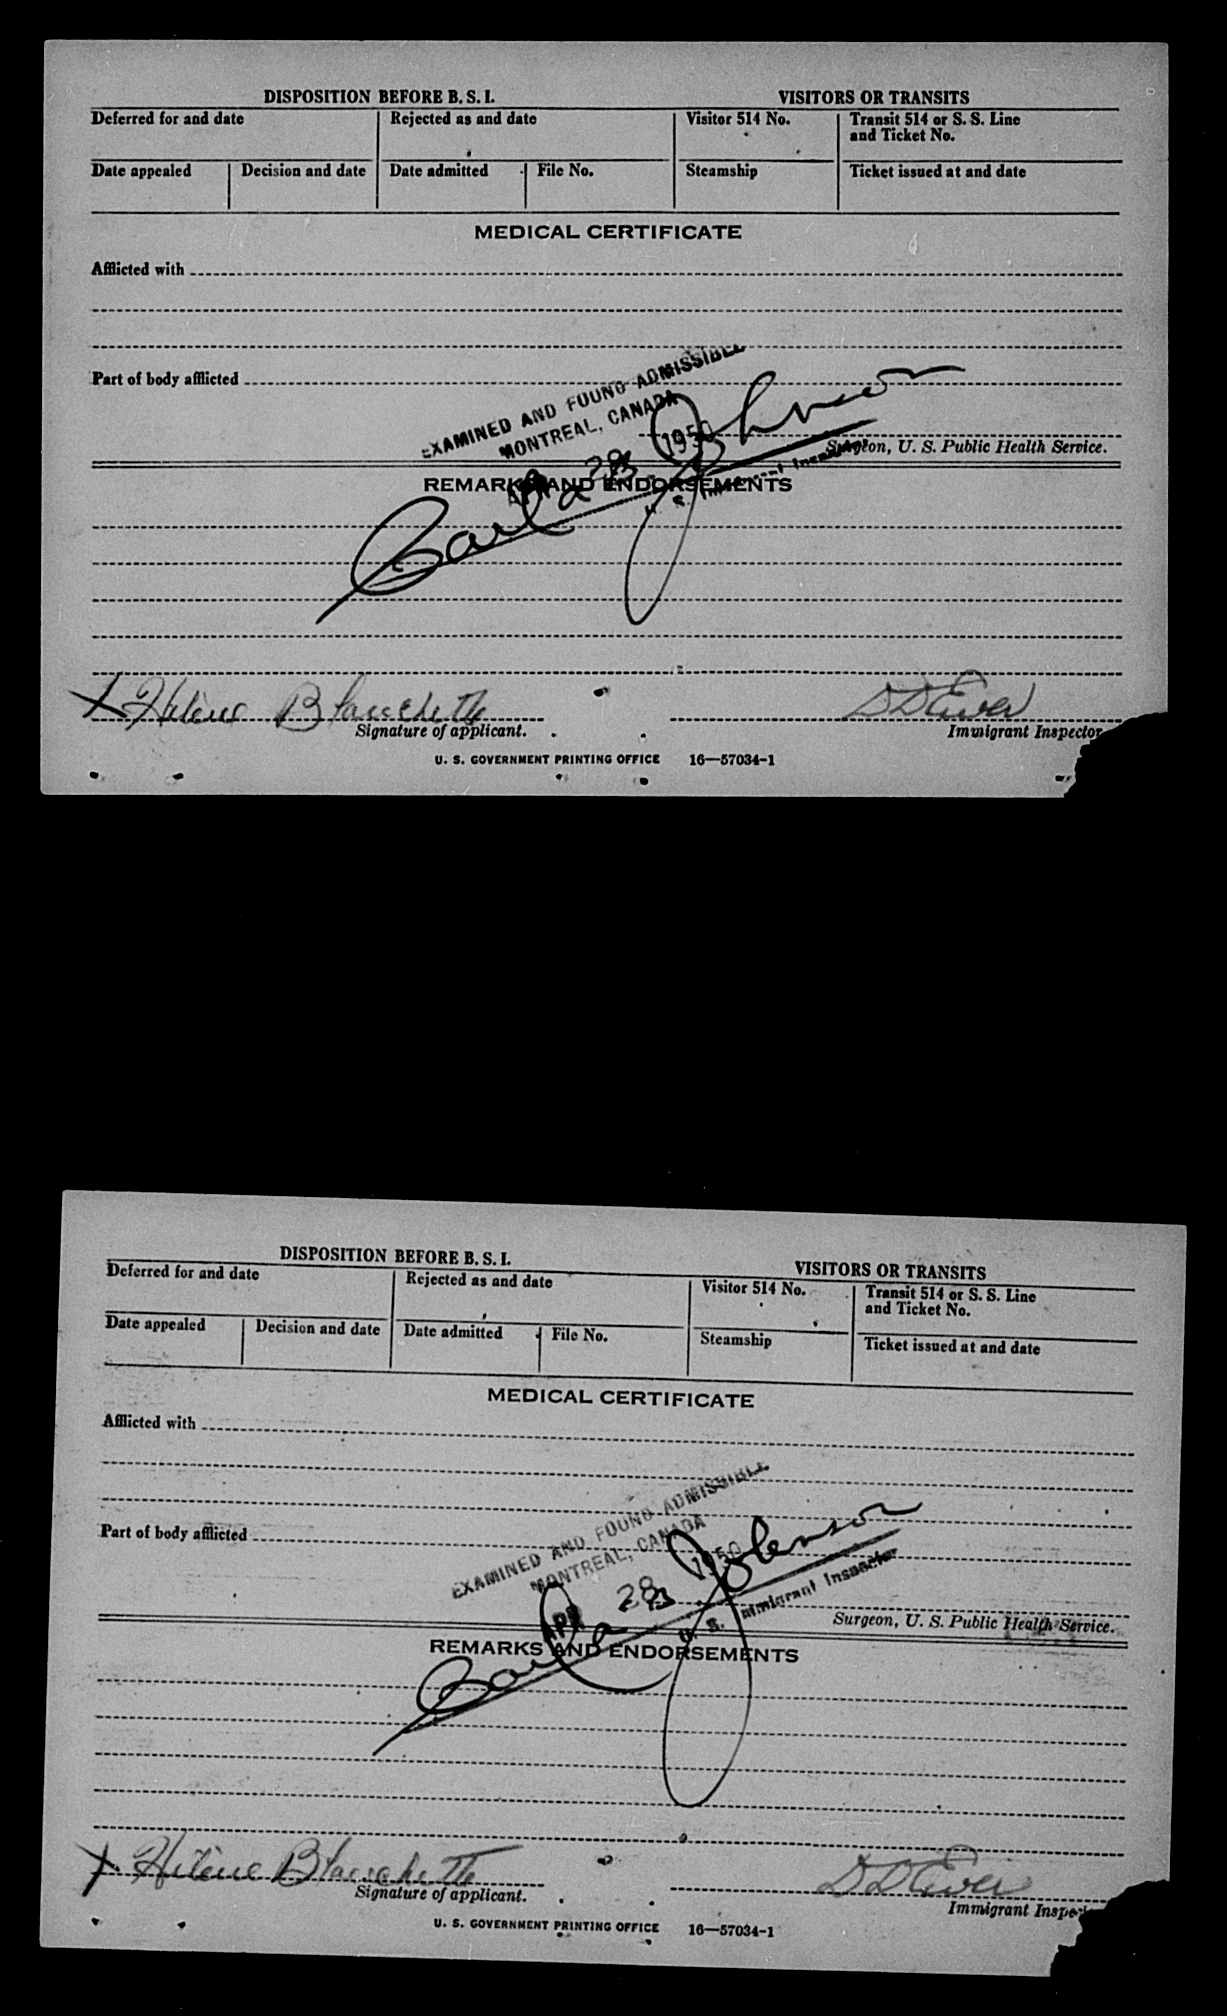 DISPOSITION BEFORE B. S. I. VISITORS OR TRANSITS
Deferred for and date Rejected as and date Visitor 514 No. Transit 514 or S. S. Line
and Ticket No.
Date appealed Decision and date Date admitted File No. Steamship Ticket issued at and date
MEDICAL CERTIFICATE
Afflicted with
Part of body afflicted
EXAMINED AND FOUND ADMISSIBLE
MONTREAL, CANADA
APR 28 1950
Carl a Johnson
U. S. Immigrant Inspector
Surgeon, U. S. Public Health Service.
REMARKS AND ENDORSEMENTS
X Helène Blanchette
Signature of applicant. Immigrant Inspector
U. S. GOVERNMENT PRINTING OFFICE 16—57034-1
DISPOSITION BEFORE B. S. I. VISITORS OR TRANSITS
Deferred for and date Rejected as and date Visitor 514 No. Transit 514 or S. S. Line
and Ticket No.
Date appealed Decision and date Date admitted File No. Steamship Ticket issued at and date
MEDICAL CERTIFICATE
Afflicted with
Part of body afflicted
EXAMINED AND FOUND ADMISSIBLE
MONTREAL, CANADA
APR 28 1950
Carl a Johnson
U. S. Immigrant Inspector
Surgeon, U. S. Public Health Service.
REMARKS AND ENDORSEMENTS
X Helène Blanchette
Signature of applicant. Immigrant
U. S. GOVERNMENT PRINTING OFFICE 16—57034-1